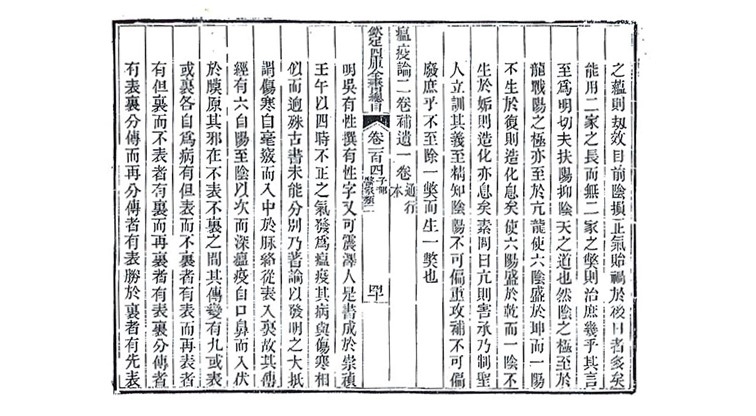 之蘊則劾效目前陰損正氣貽禍於後日者多矣
能用二家之長而無二家之弊則治庶幾乎其言
至爲明切夫扶陽抑陰天之道也然陰之極至於
龍戰陽之極亦至於亢龍使六陰盛於坤而一陽
不生於復則造化息矣使六陽盛於乾而一陰不
生於姤則造化亦息矣素問曰亢則害承乃制聖
人立訓其義至精知陰陽不可偏重攻補不可偏
廢庶乎不至除一弊而生一弊也
瘟疫論二卷補遺一卷 通行本
欽定四庫全書總目 卷一百四 子部 醫家類二
明吳有性撰有性字又可震澤人是書成於崇禎
壬午以四時不正之氣發爲瘟疫其病與傷寒相
似而迥殊古書未能分別乃著論以發明之大抵
謂傷寒自毫竅而入中於脈絡從表入裏故其傳
經有六自陽至陰以次而深瘟疫自口鼻而入伏
於膜原其邪在不表不裏之間其傳變有九或表
或裏各自爲病有但表而不裏者有表而再表者
有但裏而不表者有裏而再裏者有表裏分傳者
有表裏分傳而再分傳者有表勝於裏者有先表